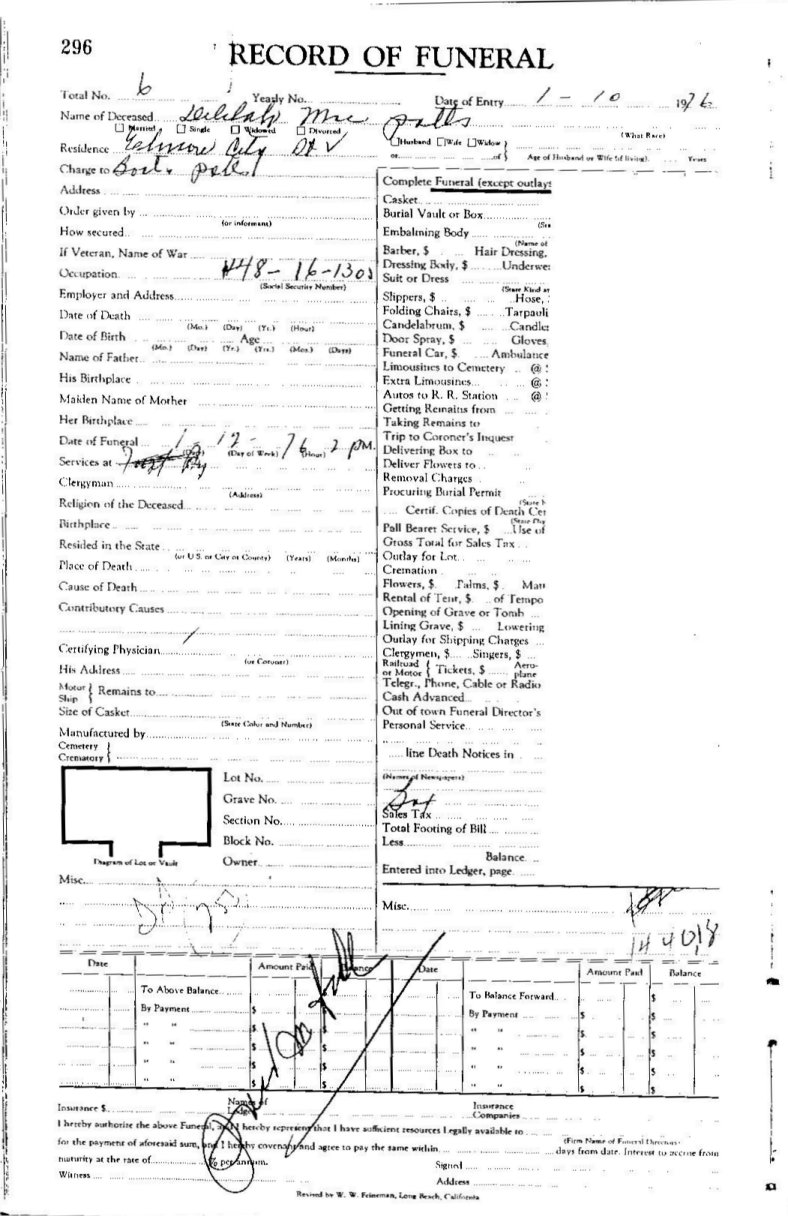 296
RECORD OF FUNERAL
Total No. 6 Yearly No. Date of Entry 1 - 10 1976
Name of Deceased Delilah Mae Potts
☐ Married ☐ Single ☐ Widowed ☐ Divorced (What Race)
Residence City ☐Husband ☐Wife ☐Widow
or of Age of Husband or Wife (if living) Years
Charge to
Address
Order given by
(or informant)
How secured
If Veteran, Name of War
Occupation 448-16-1308
(Social Security Number)
Employer and Address
Date of Death
(Mo.) (Day) (Yr.) (Hour)
Date of Birth Age
(Mo.) (Day) (Yr.) (Yrs.) (Mos.) (Days)
Name of Father
His Birthplace
Maiden Name of Mother
Her Birthplace
Date of Funeral 1 - 12 - 76 2 PM.
(Day of Week) (Hour)
Services at
Clergyman
(Address)
Religion of the Deceased
Birthplace
Resided in the State
(or U S. or City or County) (Years) (Months)
Place of Death
Cause of Death
Contributory Causes
Certifying Physician
(or Coroner)
His Address
Motor
Ship } Remains to
Size of Casket
(State Color and Number)
Manufactured by
Cemetery
Crematory }
Lot No.
Grave No.
Section No.
Block No.
Owner
Diagram of Lot or Vault
Misc.
Complete Funeral (except outlays
Casket
Burial Vault or Box
Embalming Body
(Name of
Barber, $ Hair Dressing,
Dressing Body, $ Underwe
Suit or Dress
(State Kind
Slippers, $ Hose,
Folding Chairs, $ Tarpauli
Candelabrum, $ Candle
Door Spray, $ Gloves,
Funeral Car, $ Ambulance
Limousines to Cemetery @
Extra Limousines @
Autos to R. R. Station @
Getting Remains from
Taking Remains to
Trip to Coroner's Inquest
Delivering Box to
Deliver Flowers to
Removal Charges
Procuring Burial Permit
Certif. Copies of Death Cer
Pall Bearer Service, $ Use of
Gross Total for Sales Tax
Outlay for Lot
Cremation
Flowers, $ Palms, $ Mat
Rental of Tent, $ of Tempo
Opening of Grave or Tomb
Lining Grave, $ Lowering
Outlay for Shipping Charges
Clergymen, $ Singers, $
Railroad
or Motor { Tickets, $ Aero-
plane
Telegr., Phone, Cable or Radio
Cash Advanced
Out of town Funeral Director's
Personal Service
line Death Notices in
(Names of Newspapers)
Sales Tax
Total Footing of Bill
Less
Balance
Entered into Ledger, page
Misc.
Date Amount Paid Balance Date Amount Paid Balance
To Above Balance To Balance Forward $
By Payment $ By Payment $ $
" " $ $ " " $ $
" " $ $ " " $ $
" " $ $ " " $ $
" " $ $ " " $ $
Insurance $ Insurance
Companies
I hereby authorize the above Funeral, and I hereby represent that I have sufficient resources legally available to
(Firm Name of Funeral Directors)
for the payment of aforesaid sum, and I hereby covenant and agree to pay the same within days from date. Interest to accrue from
maturity at the rate of % per annum. Signed
Witness Address
Revised by W. W. Feineman, Long Beach, California